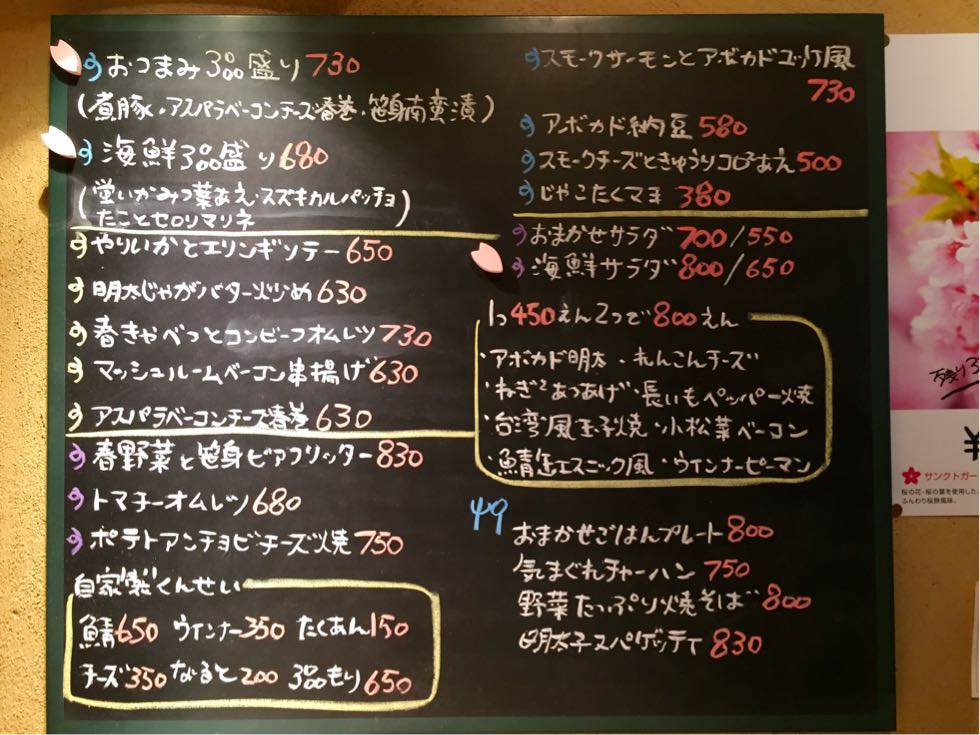 おつまみ3品盛り730
(煮豚・アスパラベーコンチーズ春巻・笹身南蛮漬)
海鮮3品盛り680
(蛍いかみつ葉あえ・スズキカルパッチョ
たことセロリマリネ)
やりいかとエリンギソテー650
明太じゃがバター炒め630
春きゃべつとコンビーフオムレツ730
マッシュルームベーコン串揚げ630
アスパラベーコンチーズ春巻630
春野菜と笹身ビアフリッター830
トマチーオムレツ680
ポテトアンチョビチーズ焼750
自家製くんせい
鯖650 ウインナー350 たくあん150
チーズ350 なると200 3品もり650
スモークサーモンとアボカドユッケ風
730
アボカド納豆580
スモークチーズときゅうりコロコロあえ500
じゃこたくマヨ 380
おまかせサラダ700/550
海鮮サラダ800/650
1つ450えん2つで800えん
・アボカド明太・れんこんチーズ
・ねぎとあつあげ・長いもペッパー焼
・台湾風玉子焼・小松菜ベーコン
・鯖缶エスニック風・ウインナーピーマン
おまかせごはんプレート800
気まぐれチャーハン750
野菜たっぷり焼そば800
明太子スパゲッティ830
サンクトガー
桜の花・桜の葉を使用した、
ふんわり桜餅風味。